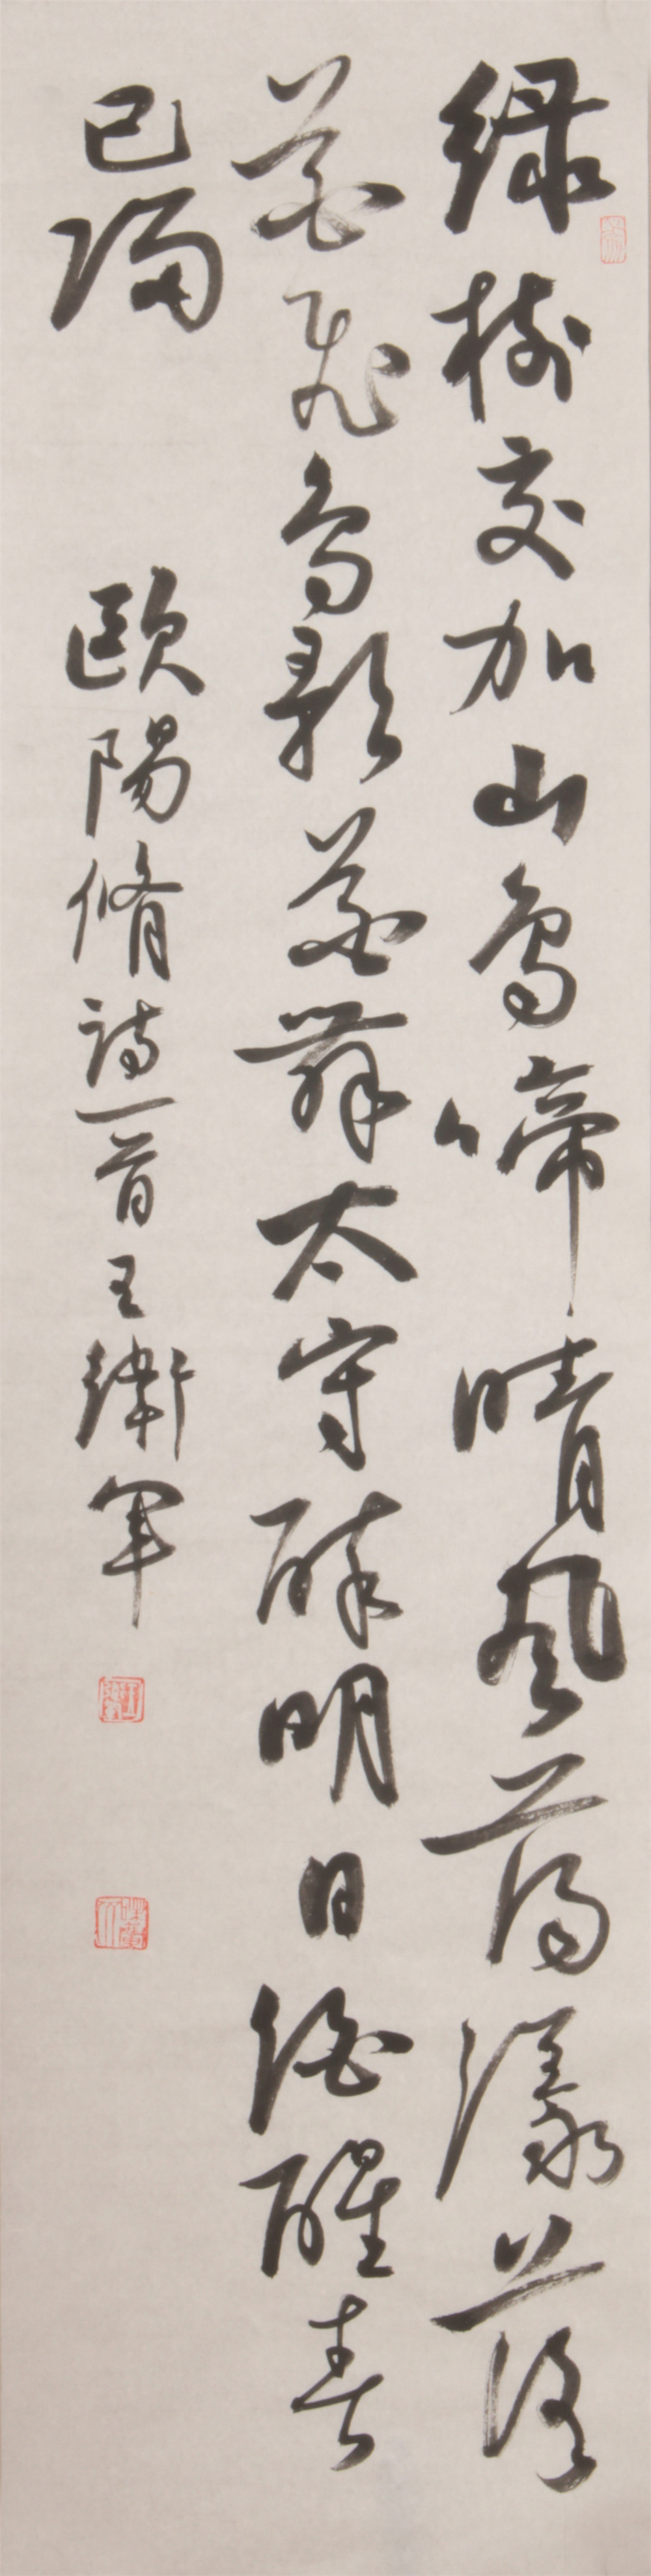 綠樹交加山鳥啼晴風蕩漾落
花飛鳥歌花舞太守醉明日酒醒春
已歸
歐陽脩詩一首王衛軍